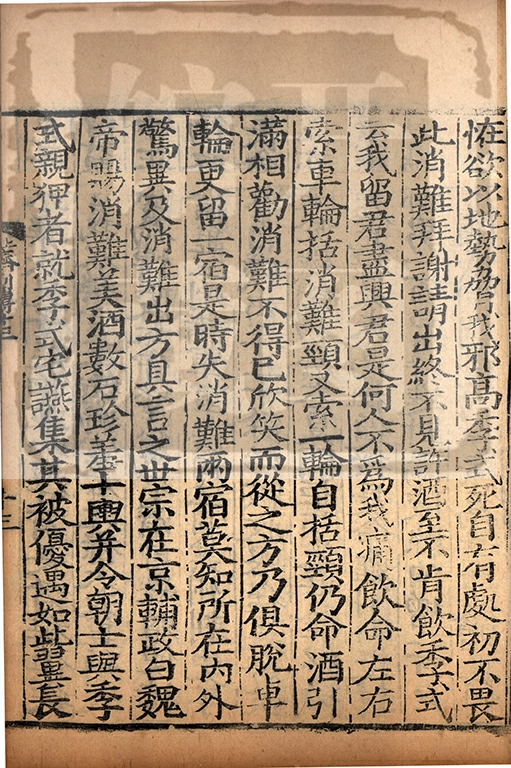 恠欲以地勢脅我邪高季式死自有處初不畏
此消難拜謝請出終不見許酒至不肯飲季式
云我留君盡興君是何人不爲我痛飲命左右
索車輪括消難頸又索一輪自括頸仍命酒引
滿相勸消難不得已欣笑而從之方乃俱脫車
輪更留一宿是時失消難兩宿莫知所在內外
驚異及消難出方具言之世宗在京輔政白魏
帝賜消難美酒數石珍羞十輿并令朝士與季
式親狎者就季式宅讌集其被優遇如此翼長